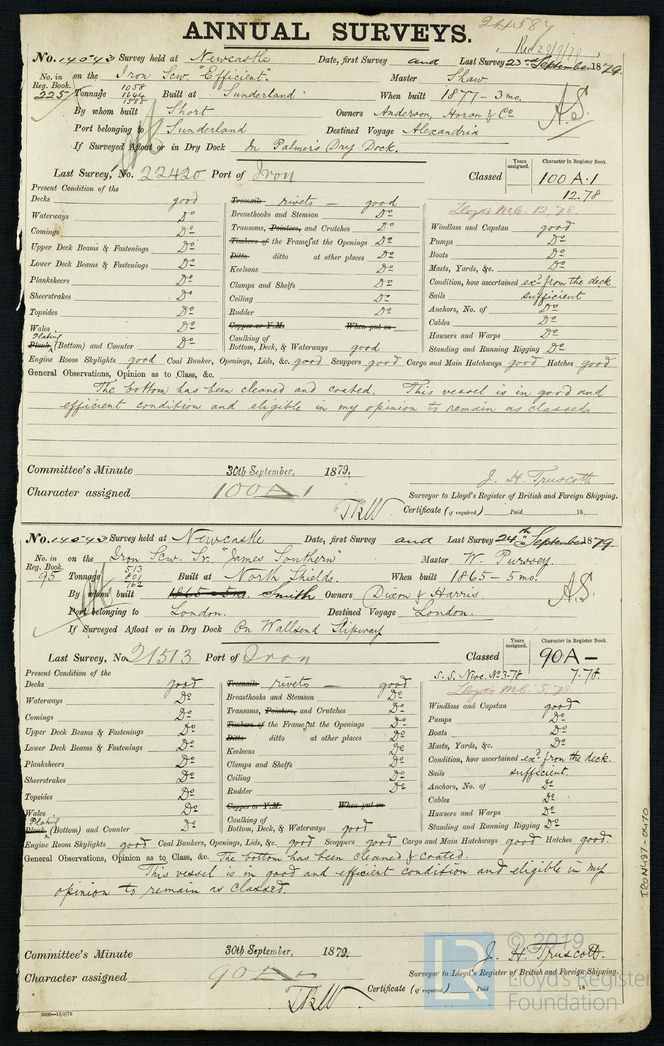 24587
ANNUAL SURVEYS.
Rec 29/9/79
No. 14043 Survey held at Newcastle Date, first Survey and Last Survey 23rd September 1879.
No. in on the Iron Scw. "Efficient". Master Shaw
Reg. Book. 1058
225 Tonnage 1644 Built at Sunderland When built 1877 - 3 mo.
By whom built Short Owners Anderson, Horan & Co A.S.
Port belonging to Sunderland Destined Voyage Alexandria
If Surveyed Afloat or in Dry Dock In Palmer's Dry Dock.
Last Survey, No. 22420 Port of Iron Classed Years assigned. Character in Register Book. 100 A.1
12.78
Lloyd's M.C. 12.78.
Present Condition of the
Decks good Treenails rivets — good
Waterways Do Breasthooks and Stemson Do Windlass and Capstan good
Comings Do Transoms, Pointers, and Crutches Do Pumps Do
Upper Deck Beams & Fastenings Do Timbers of the Frames at the Openings Do Boats Do
Lower Deck Beams & Fastenings Do Ditto ditto at other places Do Masts, Yards, &c. Do
Planksheers Do Keelsons Do Condition, how ascertained exd from the deck
Sheerstrakes Do Clamps and Shelfs Do Sails sufficient
Topsides Do Ceiling Do Anchors, No. of Do
Wales Do Rudder Do Cables Do
Plating Copper or Y.M. When put on Hawsers and Warps Do
Plank (Bottom) and Counter Do Caulking of Bottom, Deck, & Waterways good Standing and Running Rigging Do
Engine Room Skylights good Coal Bunker, Openings, Lids, &c. good Scuppers good Cargo and Main Hatchways good Hatches good
General Observations, Opinion as to Class, &c.
The bottom has been cleaned and coated. This vessel is in good and
efficient condition and eligible in my opinion to remain as classed.
Committee's Minute 30th September, 1879.
J. H. Truscott
Character assigned 100 A 1 Surveyor to Lloyd's Register of British and Foreign Shipping.
Certificate (if required) Paid 18
No. 14043 Survey held at Newcastle Date, first Survey and Last Survey 24th September 1879.
No. in on the Iron Scw. Sr. "James Southern" Master W. Pursey.
Reg. Book. 513
95 Tonnage 801 Built at North Shields. When built 1865 - 5 mo.
762
By whom built 1865 - 5 mo. Smith Owners Dixon & Harris. A.S.
Port belonging to London. Destined Voyage London.
If Surveyed Afloat or in Dry Dock On Wallsend Slipway
Last Survey, No. 21513 Port of Iron Classed Years assigned. Character in Register Book. 90 A —
S.S. Nwc. No 3-78 7.78.
Lloyd's M.C. 5.78
Present Condition of the
Decks good Treenails rivets — good
Waterways Do Breasthooks and Stemson Do Windlass and Capstan good
Comings Do Transoms, Pointers, and Crutches Do Pumps Do
Upper Deck Beams & Fastenings Do Timbers of the Frames at the Openings Do Boats Do
Lower Deck Beams & Fastenings Do Ditto ditto at other places Do Masts, Yards, &c. Do
Planksheers Do Keelsons Do Condition, how ascertained exd from the deck.
Sheerstrakes Do Clamps and Shelfs Do Sails sufficient.
Topsides Do Ceiling Do Anchors, No. of Do
Wales Do Rudder Do Cables Do
Plating Copper or Y.M. When put on Hawsers and Warps Do
Plank (Bottom) and Counter Do Caulking of Bottom, Deck, & Waterways good Standing and Running Rigging Do
Engine Room Skylights good Coal Bunkers, Openings, Lids, &c. good Scuppers good Cargo and Main Hatchways good Hatches good.
General Observations, Opinion as to Class, &c. The bottom has been cleaned & coated.
This vessel is in good and efficient condition and eligible in my
opinion to remain as classed.
Committee's Minute 30th September, 1879.
J. H. Truscott.
Character assigned 90 A Surveyor to Lloyd's Register of British and Foreign Shipping.
Certificate (if required) Paid 18
IRON487-0470
LR © 2019
Lloyd's Register
Foundation